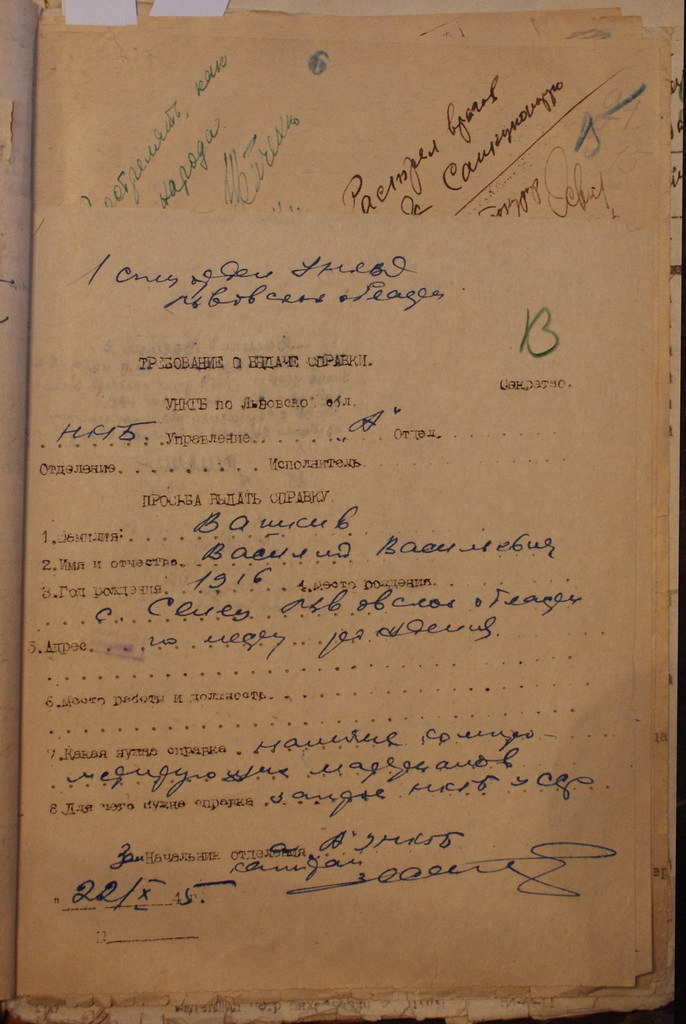 как
народа
Расстрел врагов
1 спец отдел УНКГБ
Львовской области
В
ТРЕБОВАНИЕ О ВЫДАЧЕ СПРАВКИ.
Секретно.
УНКГБ по Львовской обл.
НКГБ. Управление "А" Отдел
Отделение Исполнитель
ПРОСЬБА ВЫДАТЬ СПРАВКУ
1.Фамилия:
2.Имя и отчество. Василий Васильевич
3.Год рождения 1916 4.Место рождения
с. Селец Львовской области
5.Адрес по месту рождения
6.Место работы и должность
7.Какая нужна справка наличие компро-
метирующих материалов
8.Для чего нужна справка запрос НКГБ УССР
Зам Начальник отделения "А" УНКГБ
капитан
"22/X 45г.